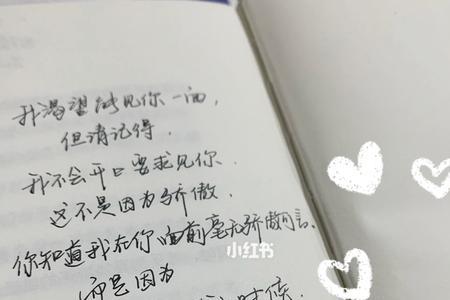 我渴望能见你一面，
但请记得，
我不会开口要求见你．
这不是因为骄傲，
你知道我在你面前毫无骄傲可言，
而是因为
时候．
小红书